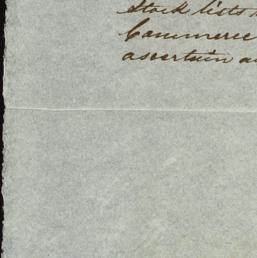 Stock lists
Commerce
ascertain a